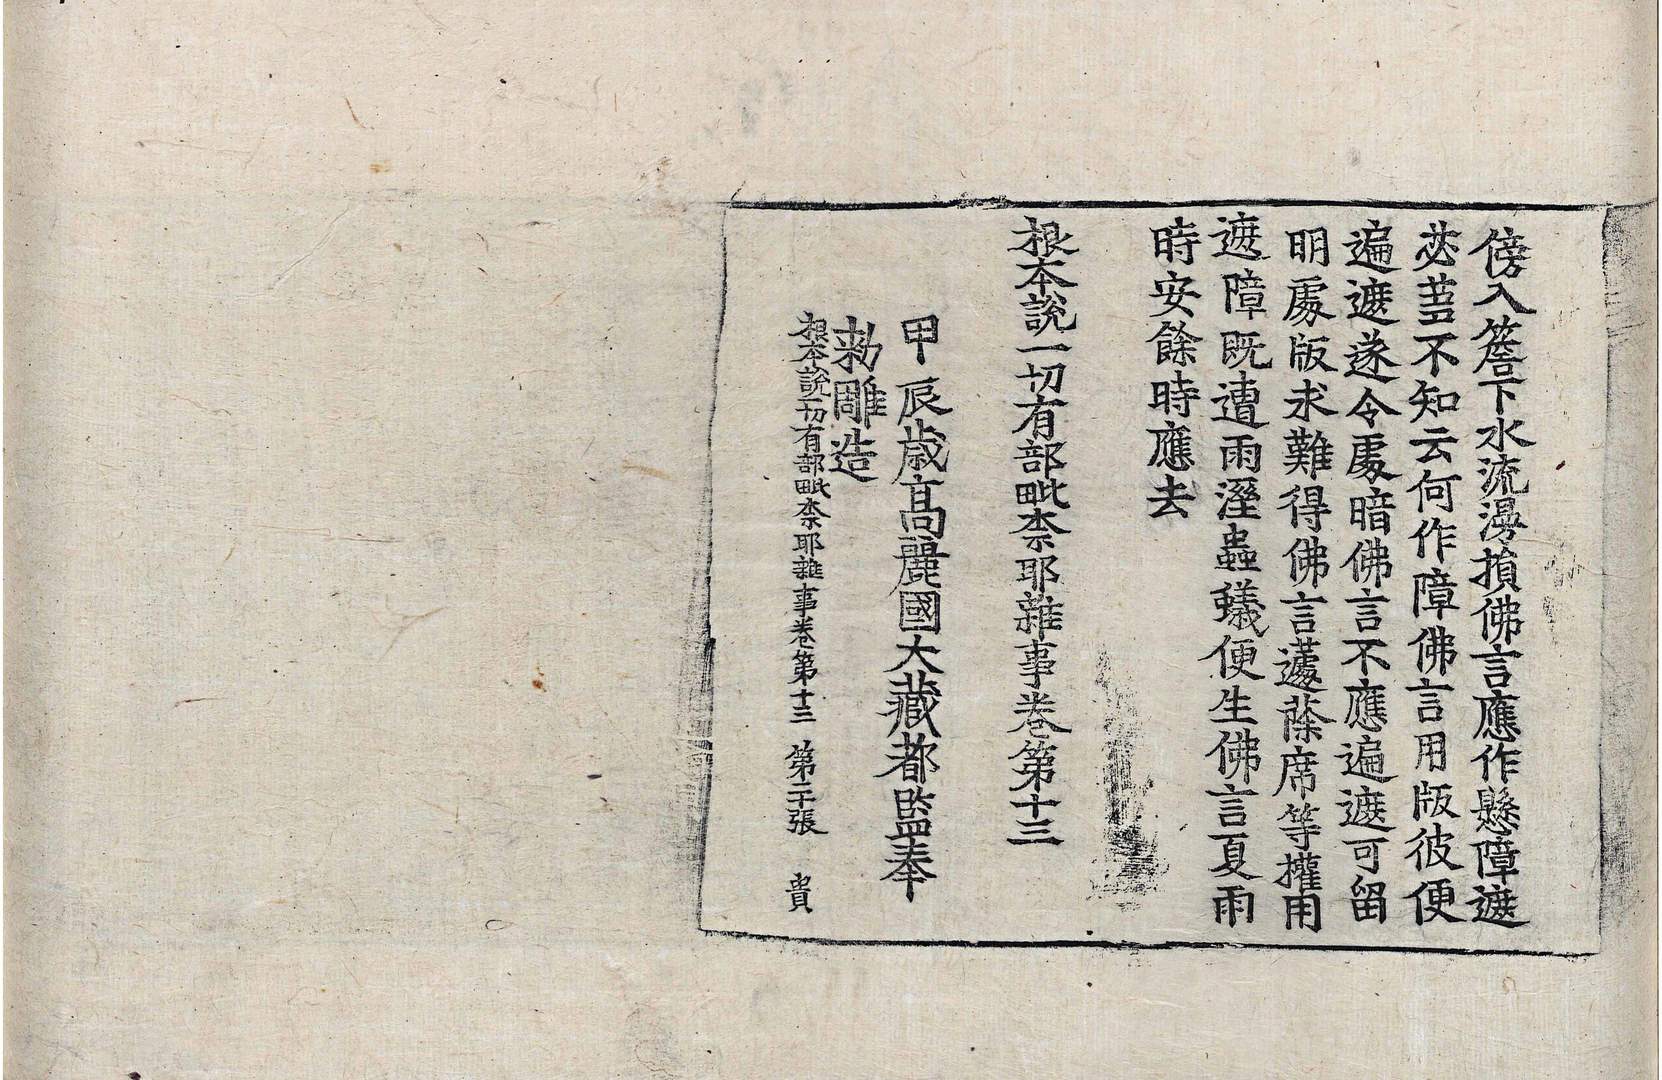 傍入簷下水流湯損佛言應作懸障遮
苾蒭不知云何作障佛言用版彼便
遍遮遂令處暗佛言不應遍遮可留
明處版求難得佛言蘧蒢席等權用
遮障既遭雨溼蟲蟻便生佛言夏雨
時安餘時應去
根本說一切有部毗柰耶雜事卷第十三
甲辰歲高麗國大藏都監奉
勑雕造
根本說一切有部毗柰耶雜事卷第十三 第二十張 貴